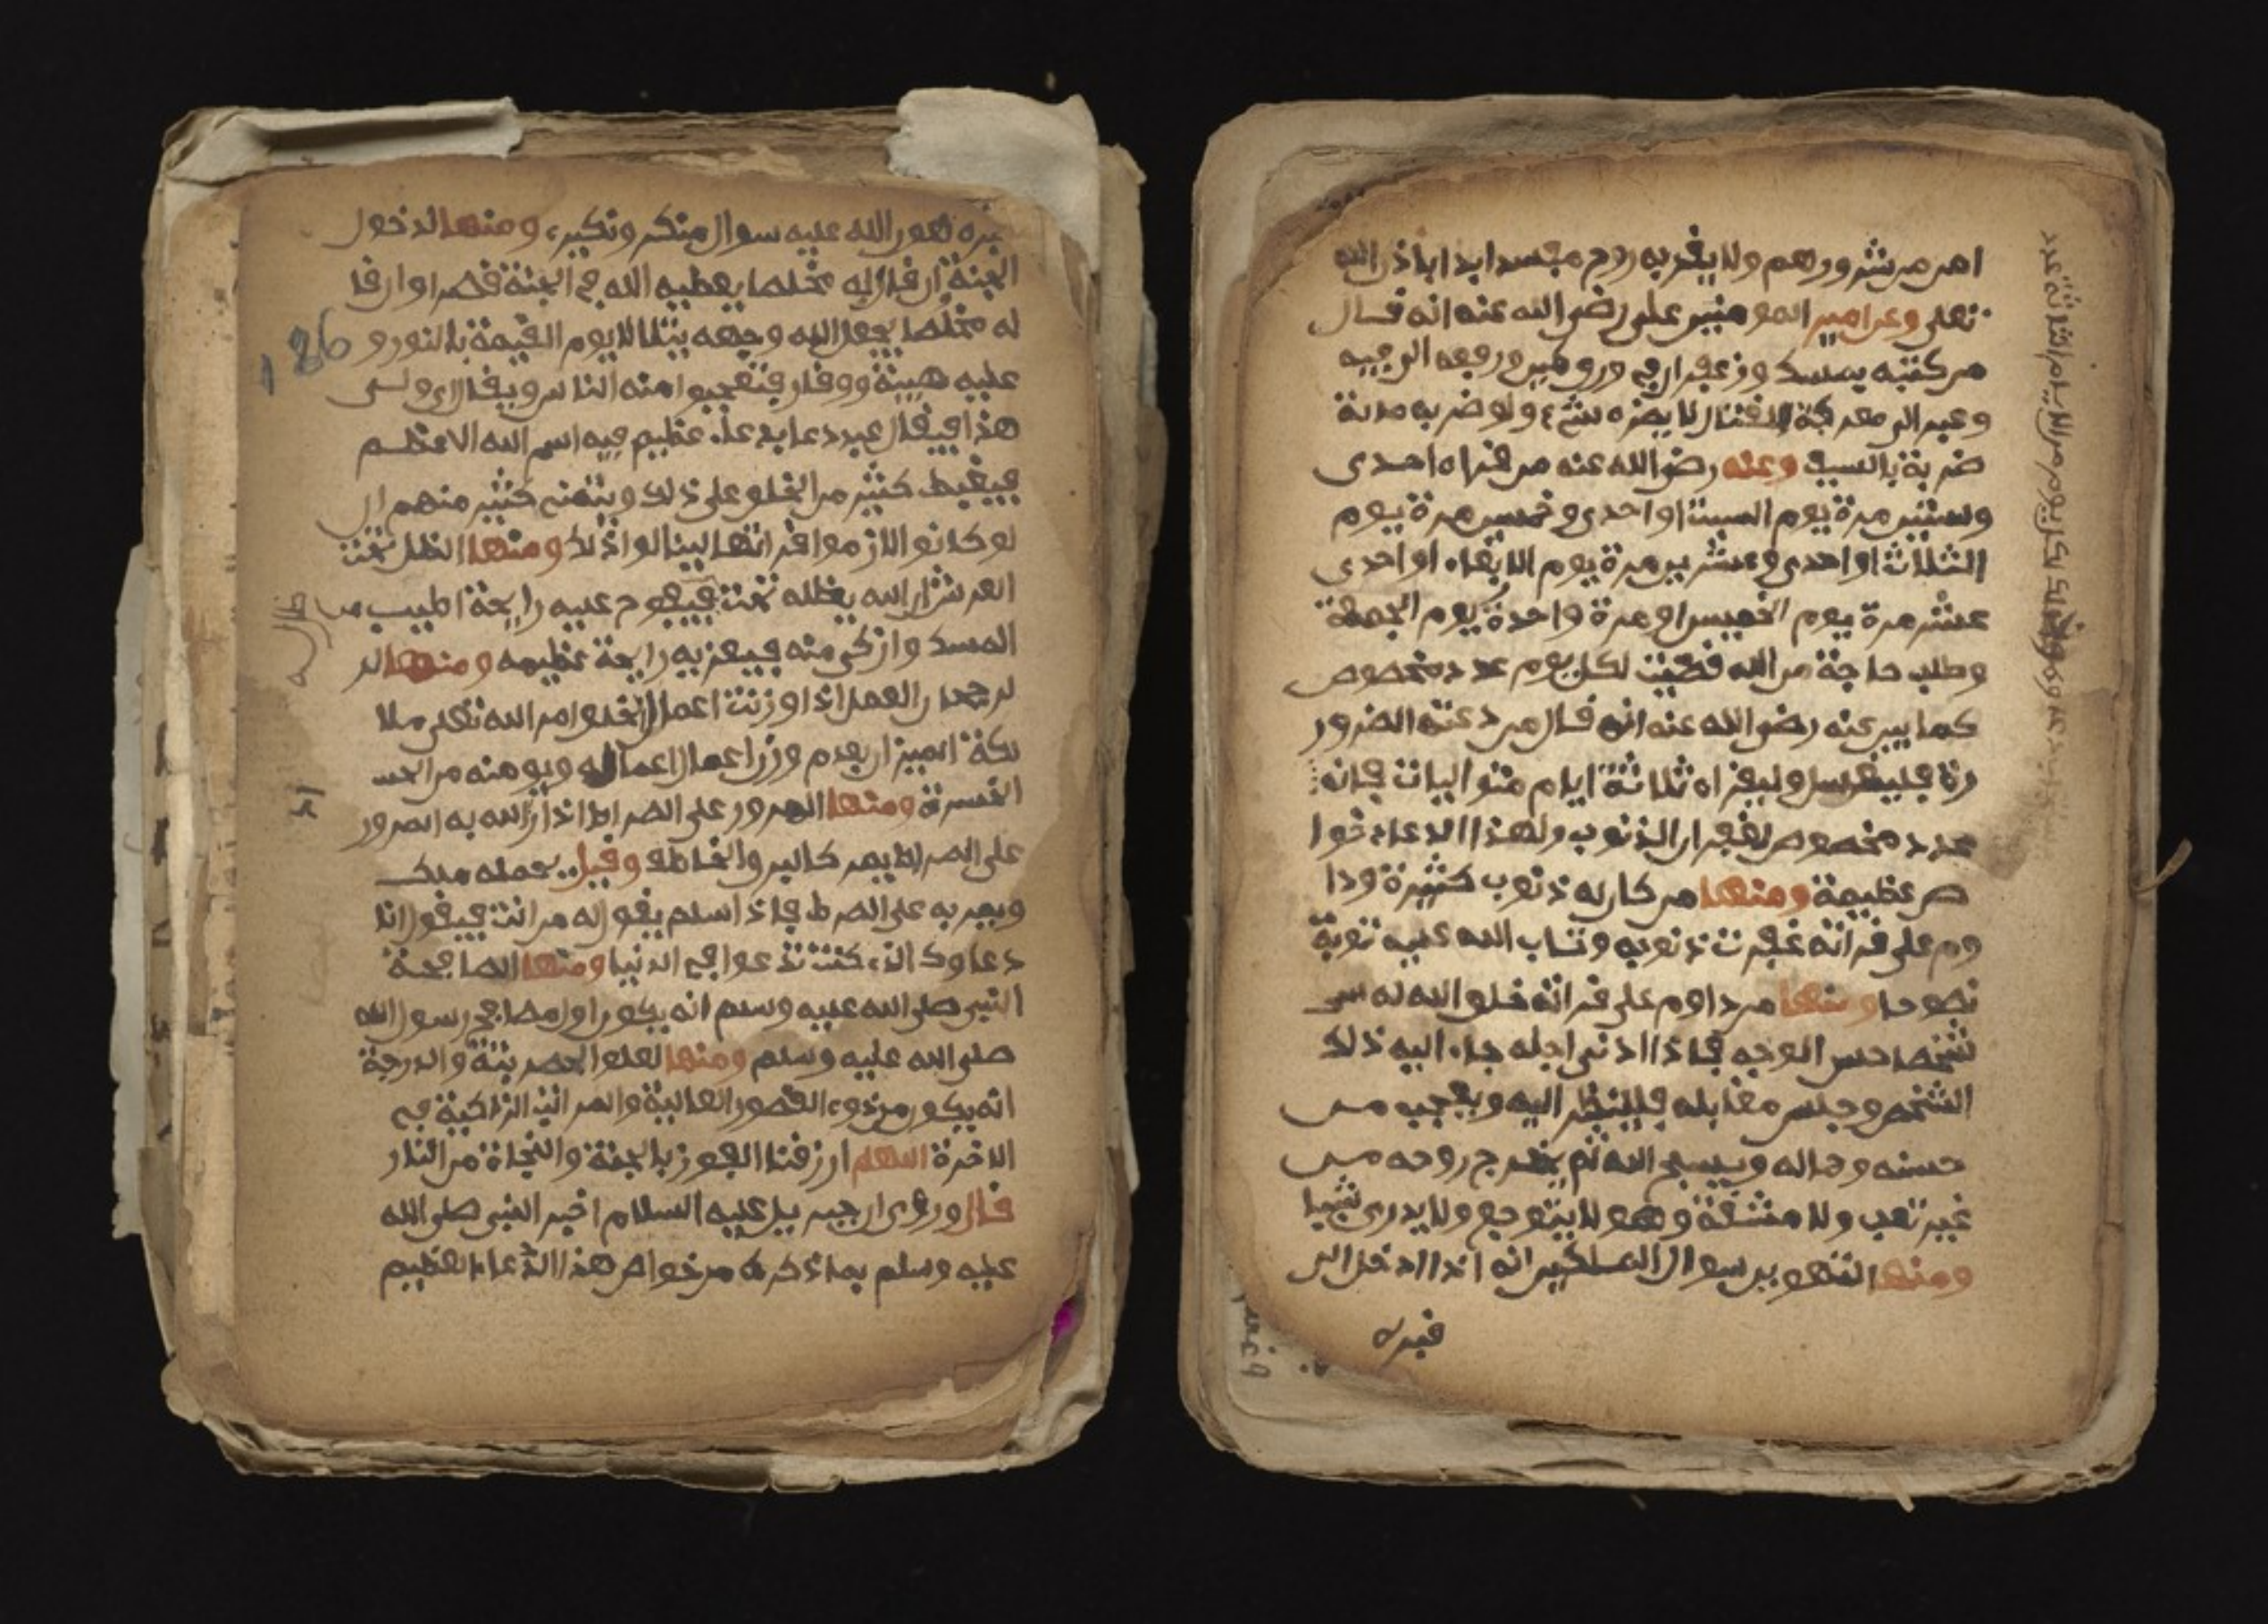 امن من شرورهم ولا يغربه روح مفسد ابدا باذن الله
تعلى وعن امير المومنين على رضى الله عنه انه قال
من كتبه بمسك وزعفران فى ورق ورفعه
وعبر الى معركة القتال لا يضره شىء ولو ضربه ماية
ضربة بالسيف وعنه رضى الله عنه من قراه احدى
وستين مرة يوم السبت او احدى وخمسين مرة يوم
الثلاث او احدى وعشرين مرة يوم الاربعاء او احدى
عشر مرة يوم الخميس او مرة واحدة يوم الجمعة
وطلب حاجة من الله قضيت لكل يوم عدد مخصوص
كما بين عنه رضى الله عنه انه قال من دعته الضرور
رة فليغتسل وليقراه ثلاثة ايام متواليات فانه
عدد مخصوص لغفران الذنوب ولهذا الدعاء خوا
ص عظيمة ومنها من كان له ذنوب كثيرة ودا
وم على قراته غفرت ذنوبه وتاب الله عليه توبة
نصوحا ومنها من داوم على قراته خلق الله له
شخصا حسن الوجه فاذا ادنى اجله جاء اليه ذلك
الشخص وجلس مقابله فلينظر اليه ويعجب من
حسنه وجماله ويسبح الله ثم يخرج روحه من
غير تعب ولا مشقة وهو لا يتوجع ولا يدرى شيا
ومنها التهوين سوال الملكين انه اذا ادخل الى
قبره
قبره هون الله عليه سوال منكر ونكير ومنها الدخول
الجنة ان قاريه مخلصا يعطيه الله فى الجنة قصرا وان قا
له مخلصا يجعل الله وجهه يتلالا يوم القيمة بالنور و
عليه هيبة ووقار فتعجبوا منه الناس ويقال اى ولى
هذا فيقال عبد دعا بدعاء عظيم فيه اسم الله الاعظم
فيغبط كثير من الخلق على ذلك ويتمنى كثير منهم ان
لو كانوا لازموا قراتها لينالوا ذلك ومنها الظل تحت
العرش ان الله يظله تحت فيفوح عليه رايحة اطيب من
المسك وازكى منه رايحة عظيمه ومنها الر
لرجحان العمل اذا وزنت اعمال الخلق امر الله تعلى ملا
يكة الميزان وزن اعماله ويومنه من
الخسرة ومنها المرور على الصراط اذا اراد الله به المرور
على الصراط يمر كالبرق الخاطف وقيل يحمله ملك
ويمر به على الصرط فاذا سلم يقول له من انت فيقول انا
دعاوك الذى كنت تدعوا فى الدنيا ومنها المصافحة
النبى صلى الله عليه وسلم انه يكون اول مصافح رسول الله
صلى الله عليه وسلم ومنها لعلو المرتبة والدرجة
انه يكون من ذوى القصور العالية والمراتب الزاكية فى
الاخرة اللهم ارزقنا الفوز بالجنة والنجاة من النار
قال وروى ان جبريل عليه السلام اخبر النبى صلى الله
عليه وسلم بما ذكره من خواص هذا الدعاء العظيم
186